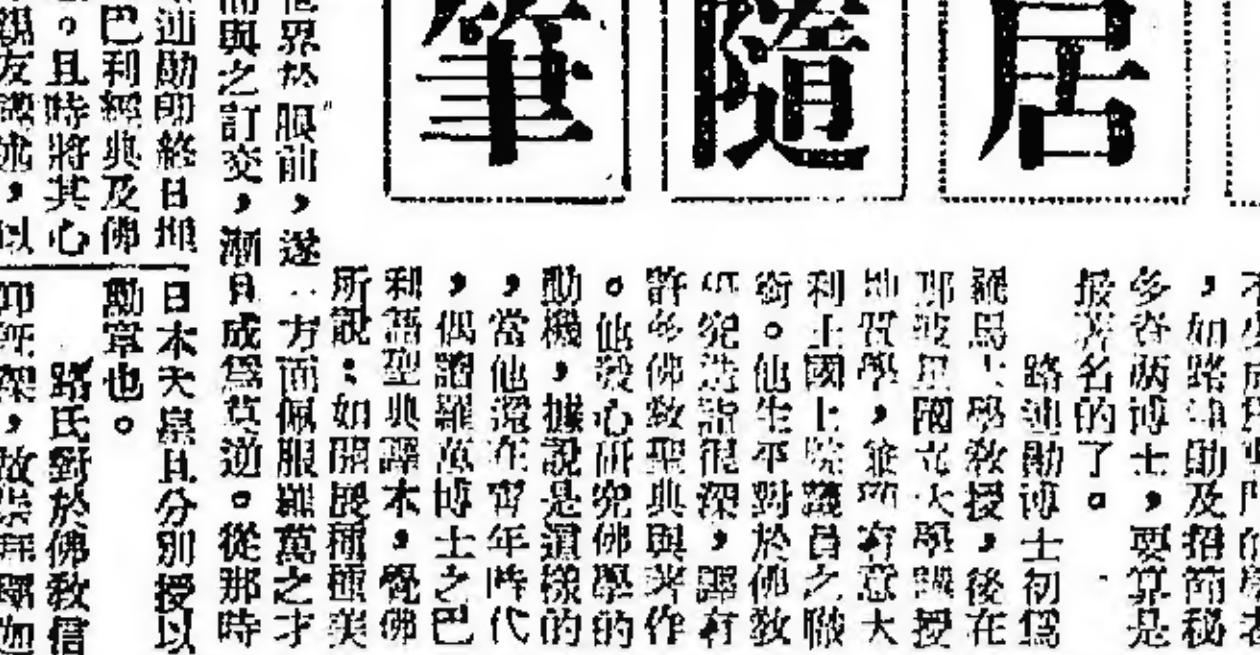 居隨筆
，如路迪勛及招簡秘
多卷兩博士，要算是
最著名的了。
路迪勛博士初爲
羅馬大學敎授，後在
那波里國立大學講授
地質學，兼領有意大
利王國上院議員之職
銜。他生平對於佛敎
研究造詣很深，譯有
許多佛敎聖典與著作
。他發心研究佛學的
動機，據說是這樣的
，當他還在青年時代
，偶讀羅萬博士之巴
利語聖典譯本，覺佛
所說：如開展種種美
世界於眼前，遂一方面佩服羅萬之才
而與之訂交，漸且成爲莫逆。從那時
迪勛卽終日埋
巴利經典及佛
。且時將其心
親友講述，以
日本天皇且分別授以
勳章也。
路氏對於佛敎信
仰所，故崇拜釋迦